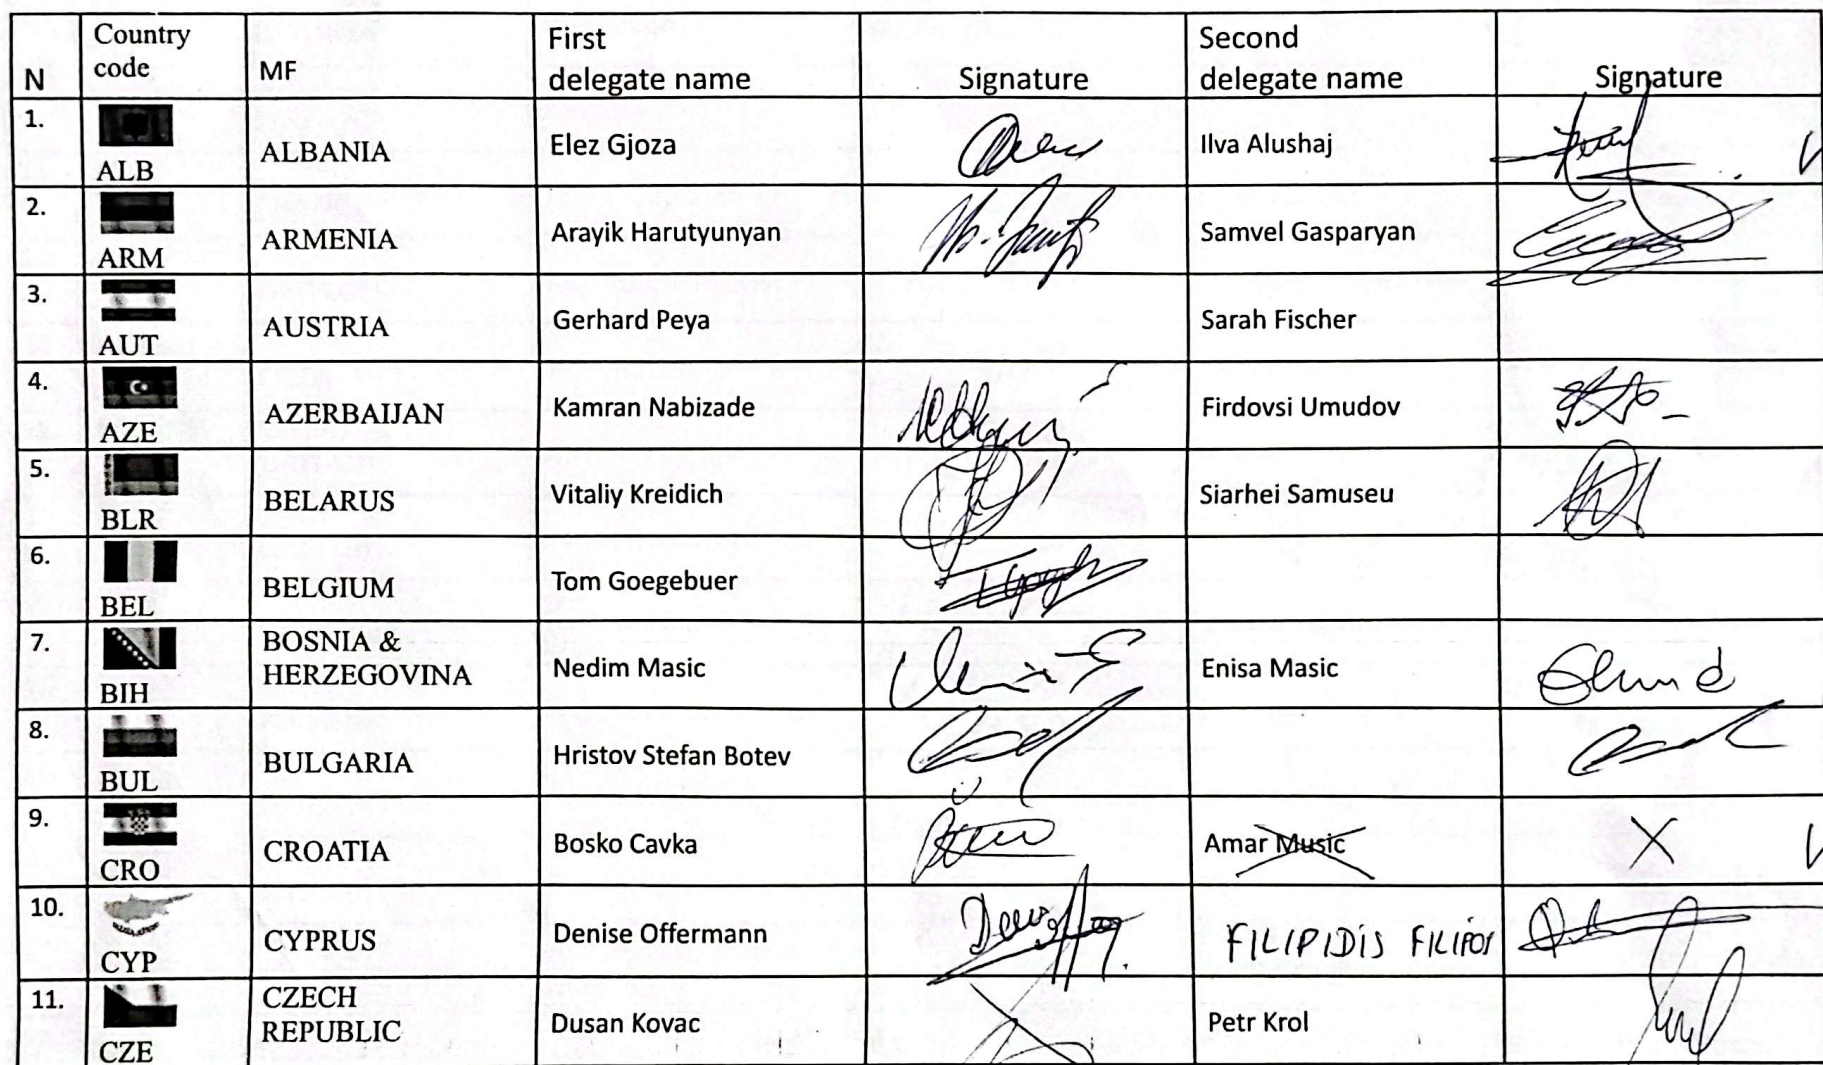 N
Country
code
MF
First
delegate name
Signature
Second
delegate name
Signature
1.
ALB
ALBANIA
Elez Gjoza
Ilva Alushaj
2.
ARM
ARMENIA
Arayik Harutyunyan
Samvel Gasparyan
3.
AUT
AUSTRIA
Gerhard Peya
Sarah Fischer
4.
AZE
AZERBAIJAN
Kamran Nabizade
Firdovsi Umudov
5.
BLR
BELARUS
Vitaliy Kreidich
Siarhei Samuseu
6.
BEL
BELGIUM
Tom Goegebuer
7.
BIH
BOSNIA &
HERZEGOVINA
Nedim Masic
Enisa Masic
8.
BUL
BULGARIA
Hristov Stefan Botev
9.
CRO
CROATIA
Bosko Cavka
Amar Music
X
10.
CYP
CYPRUS
Denise Offermann
FILIPIDIS FILIPOS
11.
CZE
CZECH
REPUBLIC
Dusan Kovac
Petr Krol